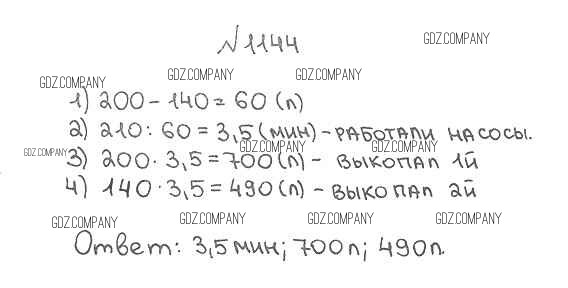 №1144
GDZ.COMPANY
GDZ.COMPANY GDZ.COMPANY GDZ.COMPANY
1) 200 - 140 = 60 (л)
2) 210 : 60 = 3,5 (мин) - РАБОТАЛИ НАСОСЫ.
GDZ.COMPANY GDZ.COMPANY GDZ.COMPANY
3) 200 · 3,5 = 700 (л) - ВЫКОПАЛ 1й
4) 140 · 3,5 = 490 (л) - ВЫКОПАЛ 2й
GDZ.COMPANY GDZ.COMPANY GDZ.COMPANY GDZ.COMPANY
Ответ: 3,5 мин; 700л; 490л.